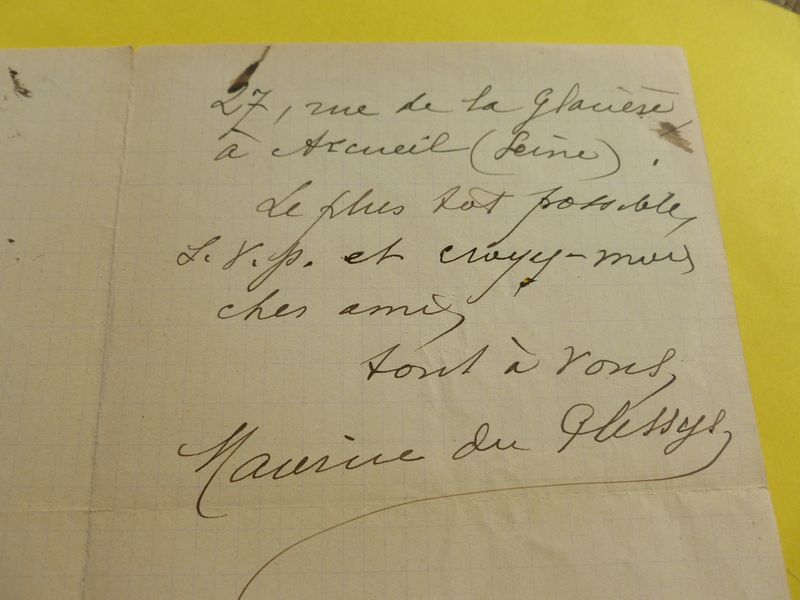 27, rue de la Glacière,
à Arcueil (Seine).
Le plus tôt possible,
S. V. p. et croyez-moi,
cher ami,
tout à vous,
Maurice du Plessys,